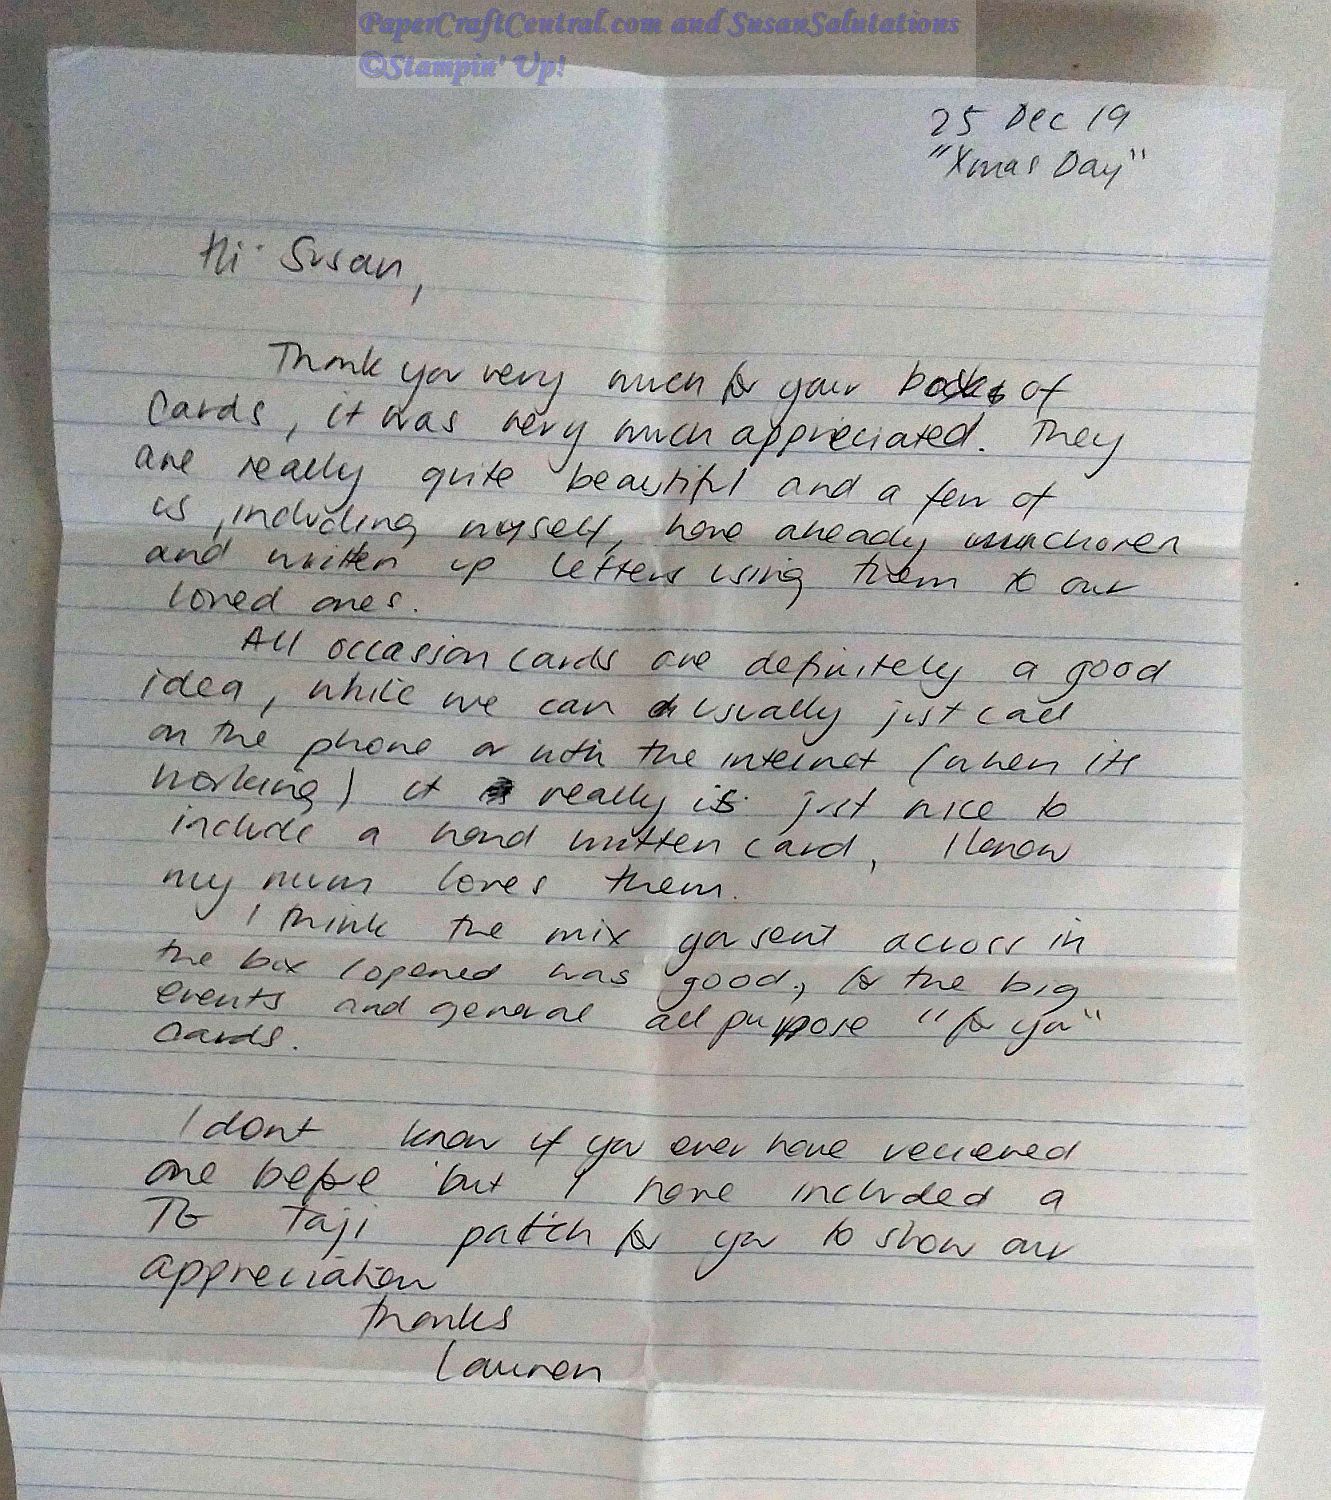 PaperCraftCentral.com and SusanSalutations
©Stampin' Up!
25 Dec 19
"Xmas Day"
Hi Susan,
Thank you very much for your of
cards, it was very much appreciated. They
are really quite beautiful and a few of
us, including myself, have already chosen
and written up letters using them to our
loved ones.
All occassion cards are definitely a good
idea, while we can usually just call
on the phone or with the internet (when its
working) it really is just nice to
include a hand written card, I know
my mum loves them.
I think the mix you sent across in
the box I opened was good, for the big
events and general all purpose "for you"
cards.
I dont know if you ever have recieved
one before but I have included a
TG Taji patch for you to show our
appreciation
Thanks
Lauren